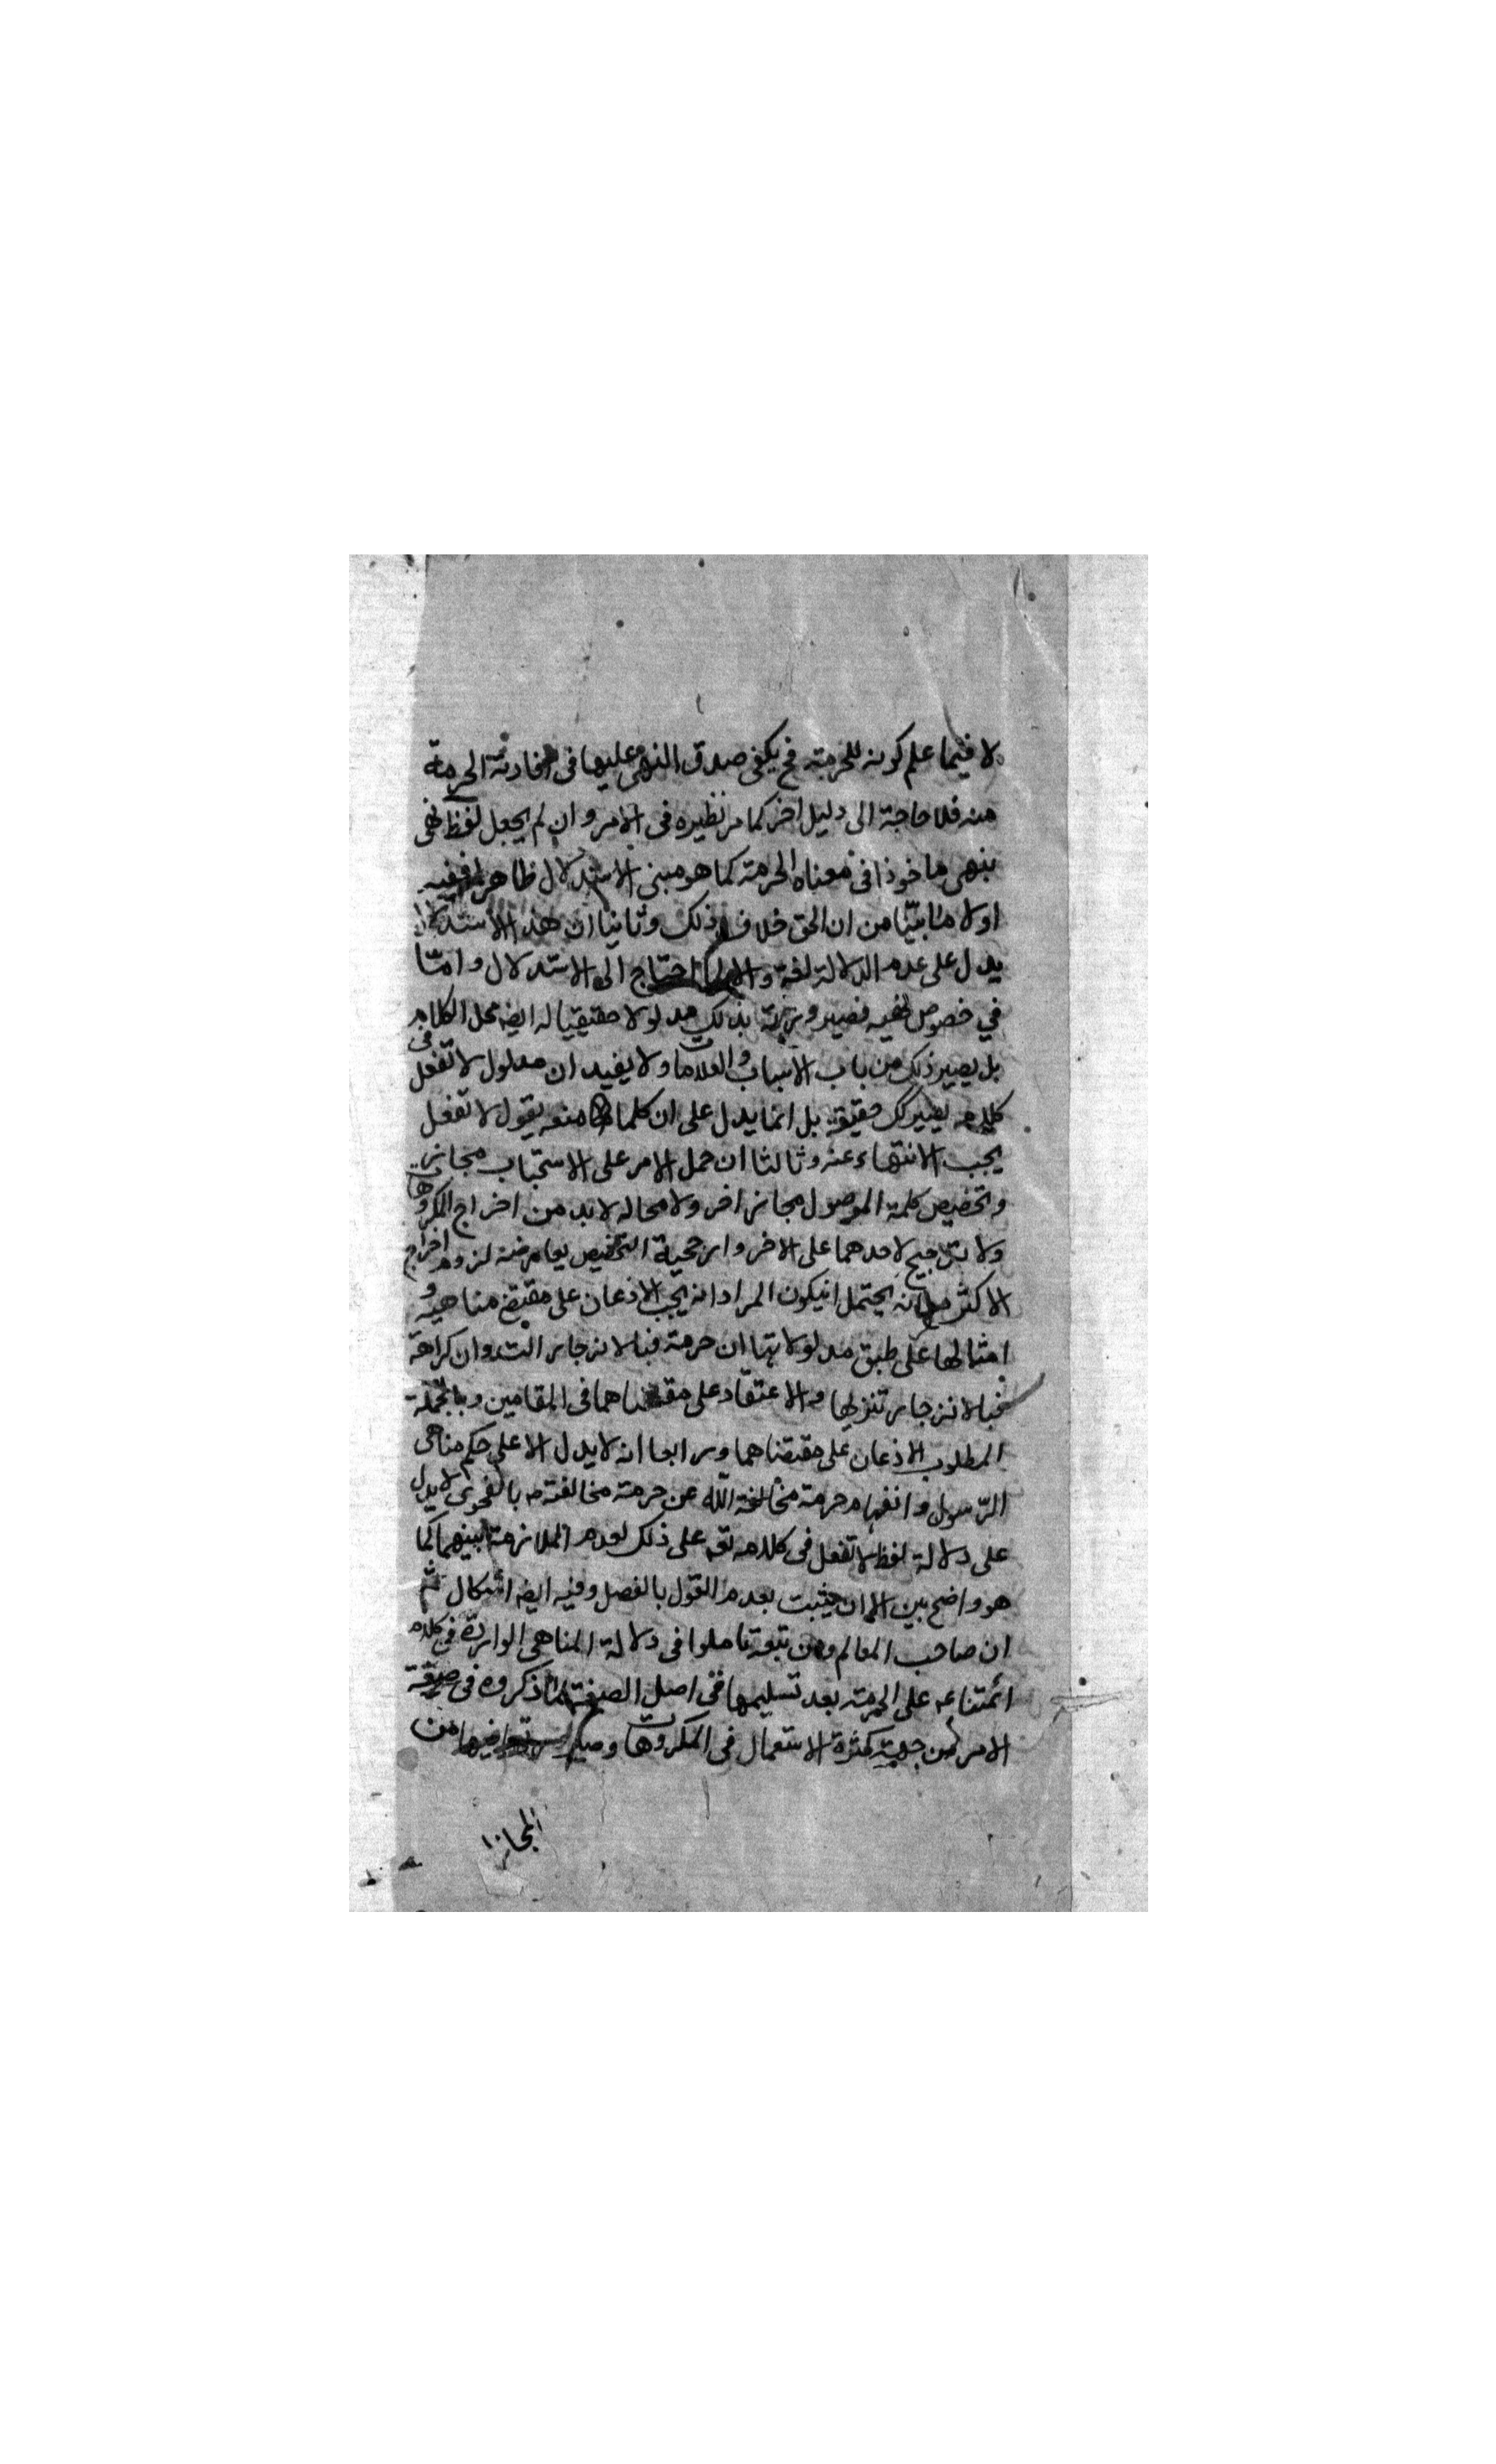 لا فيما علم كونه للحرمة فح يكفى صدق النهى عليها فى افادته الحرمة
منه فلا حاجة الى دليل اخر كما مر نظيره فى الامر وان لم يجعل لفظ نهى
ينهى ماخوذا فى معناه الحرمة كما هو مبنى الاستدلال ظاهرا ففيه
اولا ما بيّنا من ان الحق خلاف ذلك وثانيا ان هذا الاستدلال
يدل على عدم الدلالة لغة والا لما احتاج الى الاستدلال وامّا
في خصوص نهيه فصيرورته بذلك مدلولا حقيقيا له ايضه محل الكلام
بل يصير ذلك من باب الاسباب والعلامات ولا يفيد ان مدلول لا تفعل فى
كلامه يصير كك حقيقة بل انما يدل على ان كلما منعه بقول لا تفعل
يجب الانتهاء عنه وثالثا ان حمل الامر على الاستحباب مجاز
وتخصيص كلمة الموصول مجاز اخر ولا محاله لابد من اخراج المكروهات
ولا ترجيح لاحدهما على الاخر وارجحية التخصيص يعارضه لزوم اخراج
الاكثر مع انه يحتمل ان يكون المراد انه يجب الاذعان على مقتضى مناهيه و
امثالها على طبق مدلولاتها ان حرمة فبالانزجار البت وان كراهة
فبالانزجار تنزيها والاعتقاد على مقتضاهما فى المقامين وبالجملة
المطلوب الاذعان على مقتضاهما ورابعا انه لا يدل الا على حكم مناهى
الرّسول وانفهام حرمة مخالفة اللّه عن حرمة مخالفته ص بالفحوى لا يدل
على دلالة لفظ لا تفعل فى كلامه تعه على ذلك لعدم الملازمة بينهما كما
هو واضح بين الا ان يثبت بعدم القول بالفصل وفيه ايضه اشكال ثم
ان صاحب المعالم ومن تبعه تاملوا فى دلالة المناهى الواردة فى كلام
ائمتنا ع على الحرمة بعد تسليمها فى اصل الصيغة لما ذكروه فى صيغة
الامر من جهة كثرة الاستعمال فى المكروهات وصيرورتها فيها من
المجاز